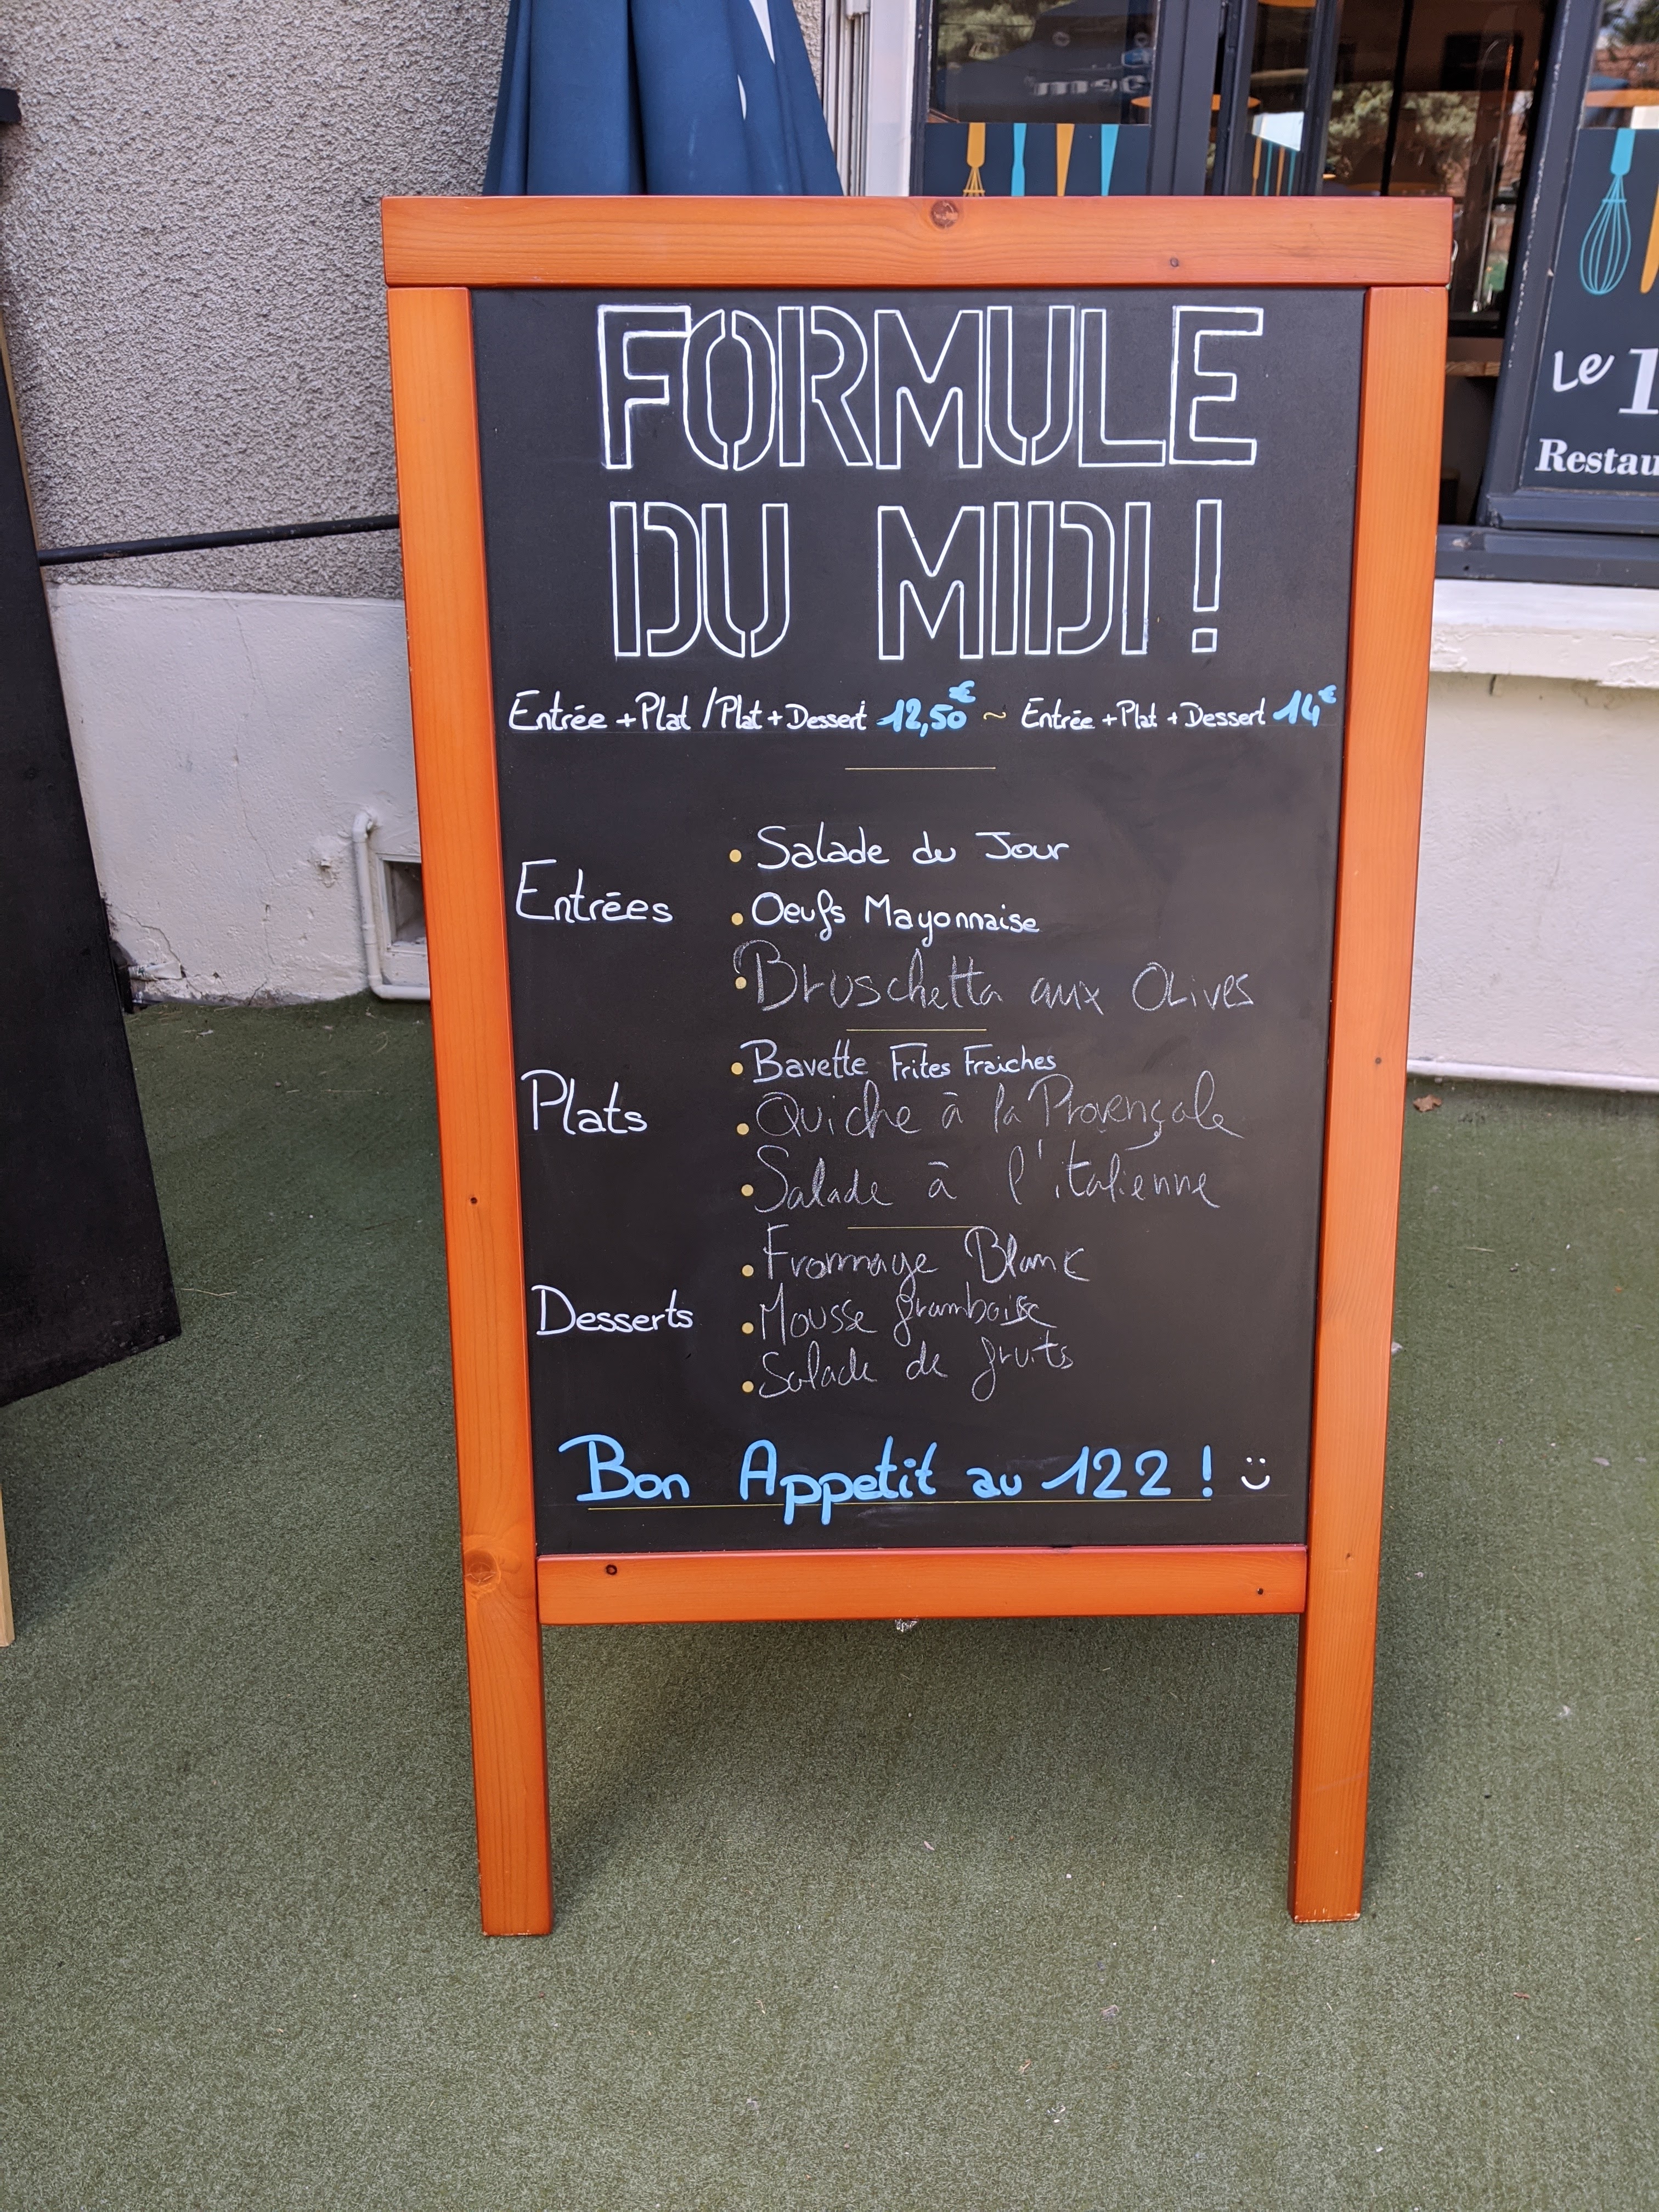 FORMULE
DU MIDI !
Entrée + Plat / Plat + Dessert 12,50€ ~ Entrée + Plat + Dessert 14€
Entrées
• Salade du Jour
• Oeufs Mayonnaise
• Bruschetta aux Olives
Plats
• Bavette Frites Fraiches
• Quiche à la Provençale
• Salade à l'italienne
Desserts
• Fromage Blanc
• Mousse framboise
• Salade de fruits
Bon Appetit au 122 !
Le 1
Restau